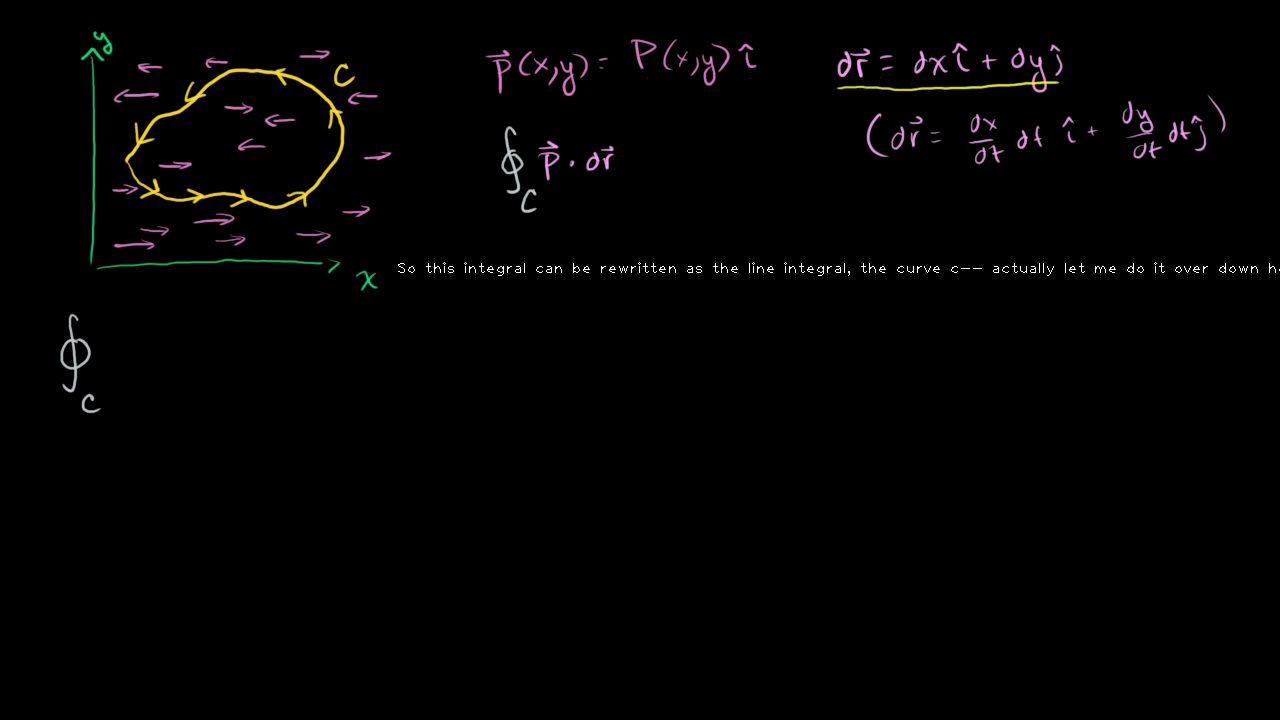 y
C
x
p⃗(x,y) = P(x,y) î
∮_C p⃗ · dr⃗
dr⃗ = dx î + dy ĵ
(dr⃗ = dx/dt dt î + dy/dt dt ĵ)
So this integral can be rewritten as the line integral, the curve c-- actually let me do it over down h
∮_C